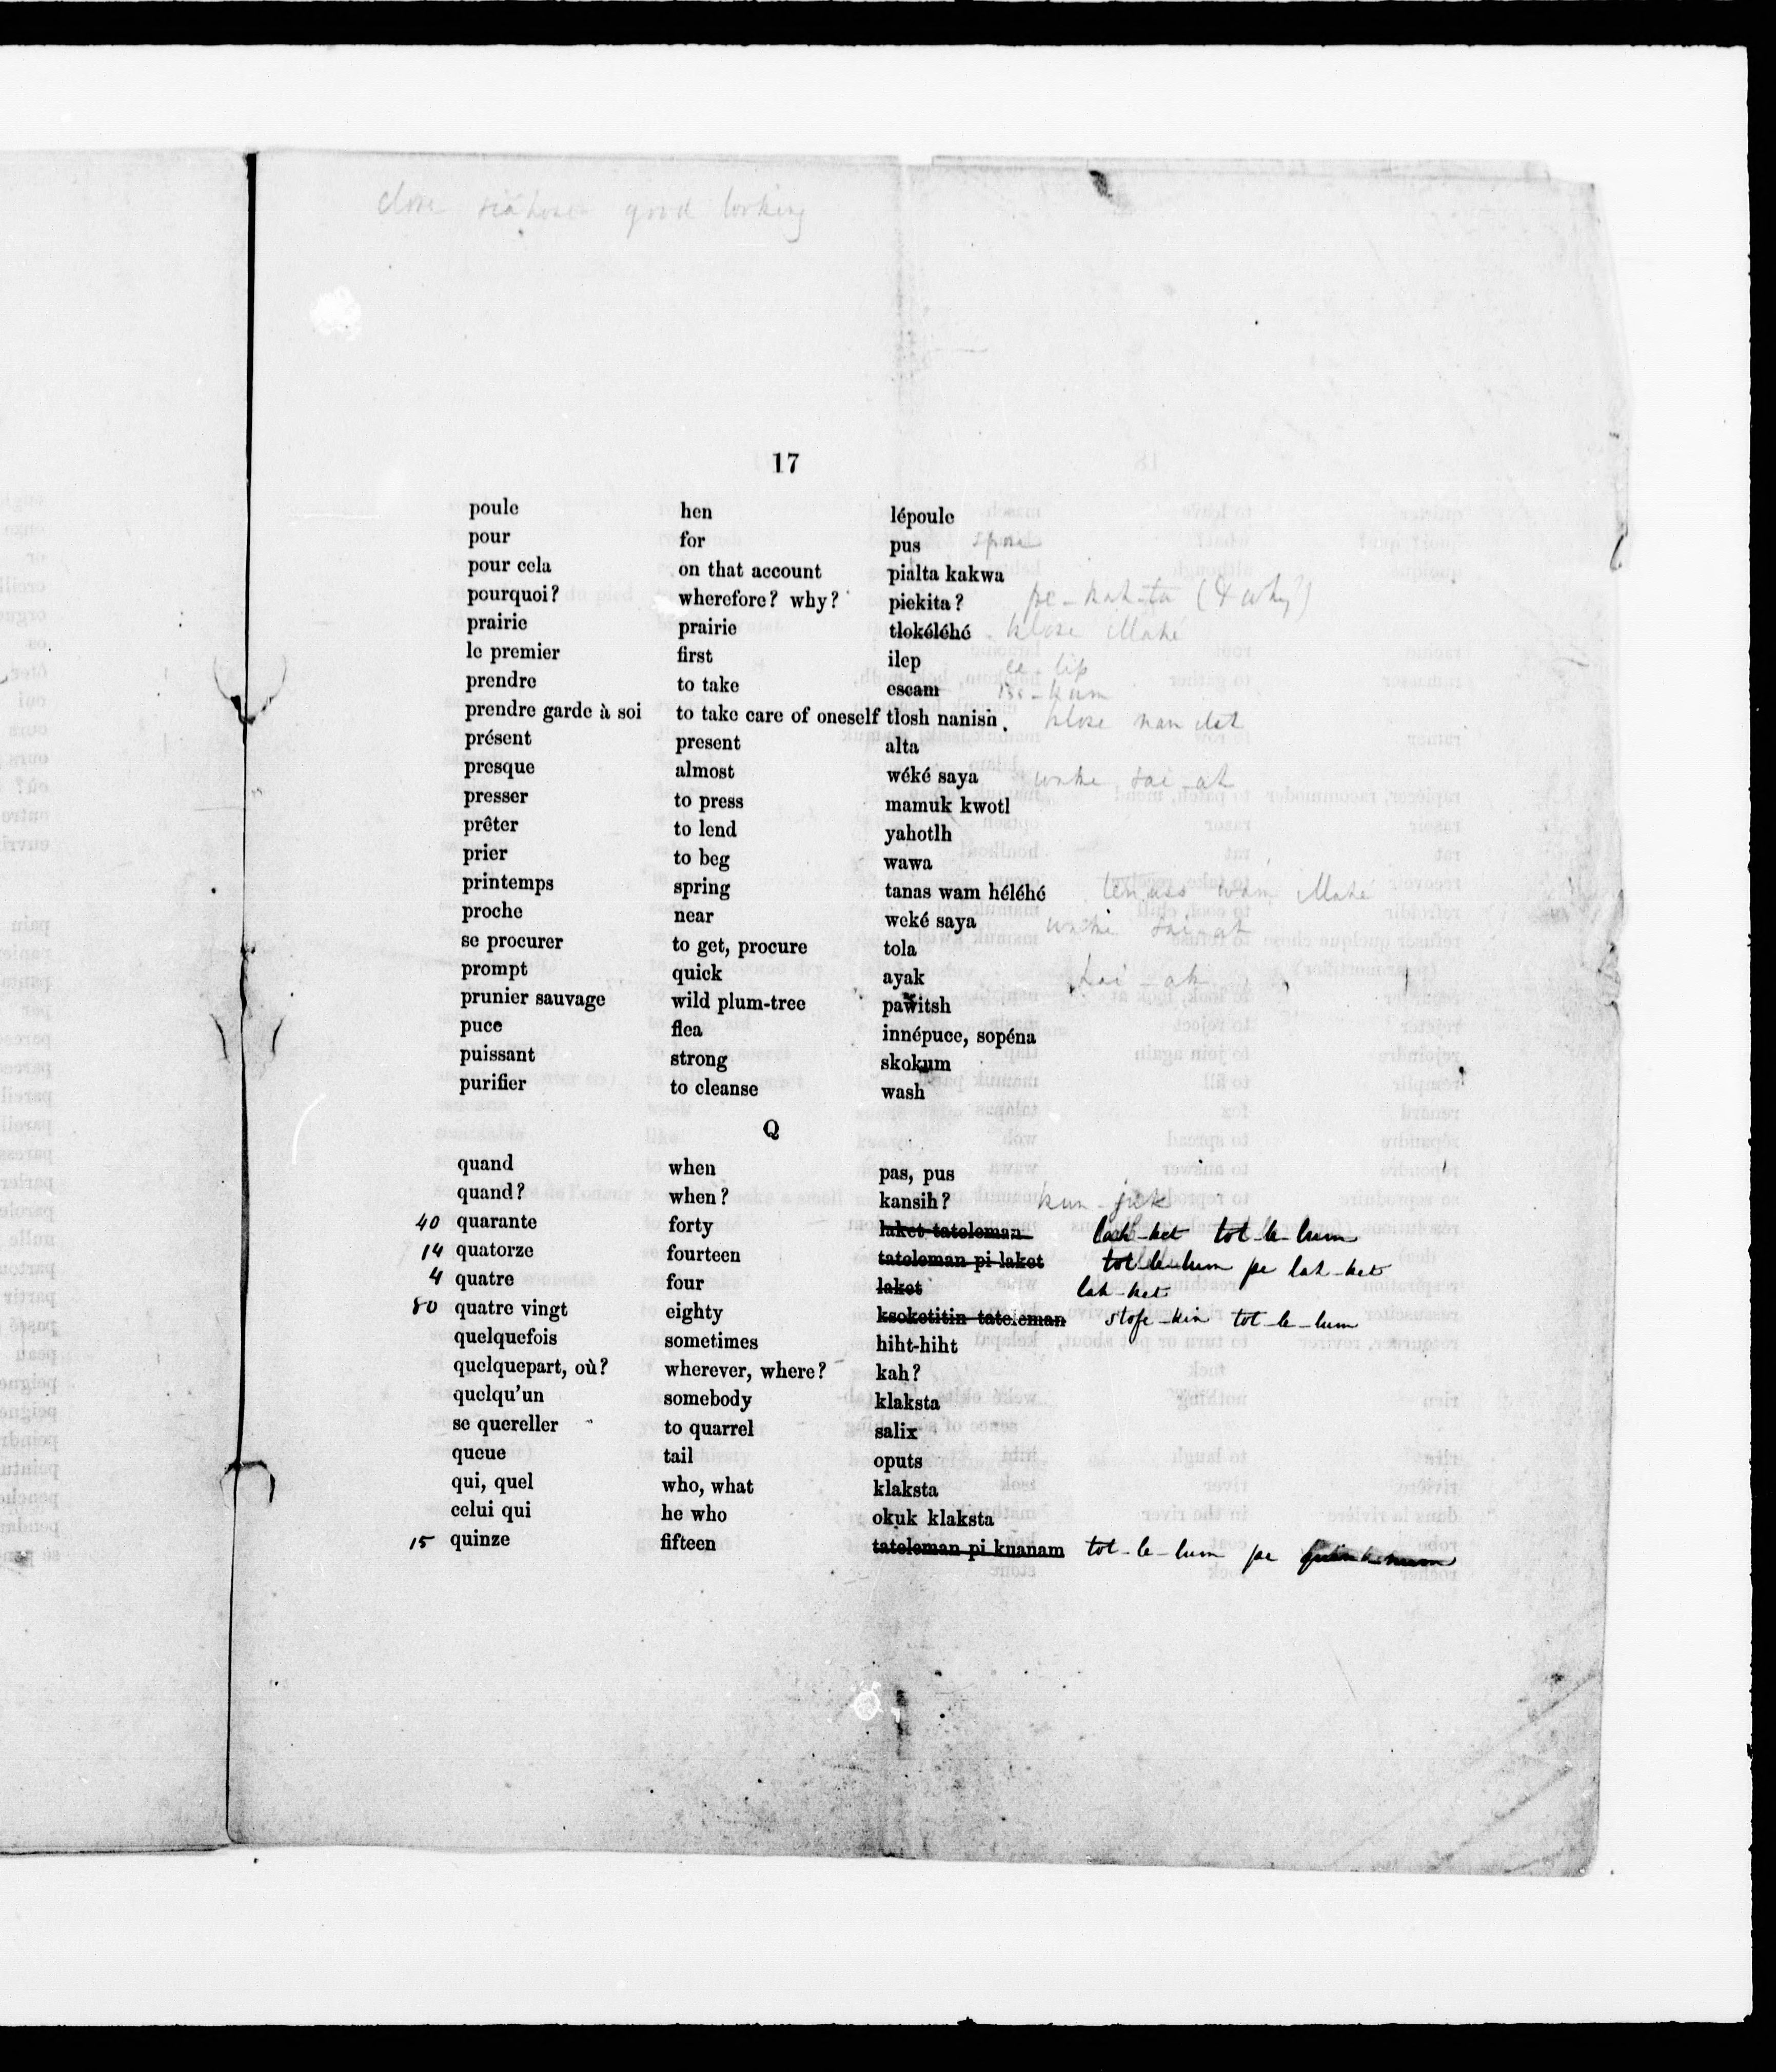 close siahose good looking
17
poule hen lépoule
pour for pus spose
pour cela on that account pialta kakwa
pourquoi? wherefore? why? piekita? pe-kah-ta (& why?)
prairie prairie tlokéléhé klose illahé
le premier first ilep ee lip
prendre to take escam iss-kum
prendre garde à soi to take care of oneself tlosh nanish klose nan
présent present alta
presque almost wéké saya wake sai-ah
presser to press mamuk kwotl
prêter to lend yahotlh
prier to beg wawa
printemps spring tanas wam héléhé tenass wam illahé
proche near weké saya wake sai-ah
se procurer to get, procure tola
prompt quick ayak hai-ak
prunier sauvage wild plum-tree pawitsh
puce flea innépuce, sopéna
puissant strong skokum
purifier to cleanse wash
Q
quand when pas, pus
quand? when? kansih? kun-
40 quarante forty laket tateleman lah-ket tot-le-lum
14 quatorze fourteen tateleman pi laket tot-le-lum pe lah-ket
4 quatre four laket lah-ket
80 quatre vingt eighty ksoketitin tateleman stofe-kin tot-le-lum
quelquefois sometimes hiht-hiht
quelquepart, où? wherever, where? kah?
quelqu'un somebody klaksta
se quereller to quarrel salix
queue tail oputs
qui, quel who, what klaksta
celui qui he who okuk klaksta
15 quinze fifteen tateleman pi kuanam tot-le-lum pe